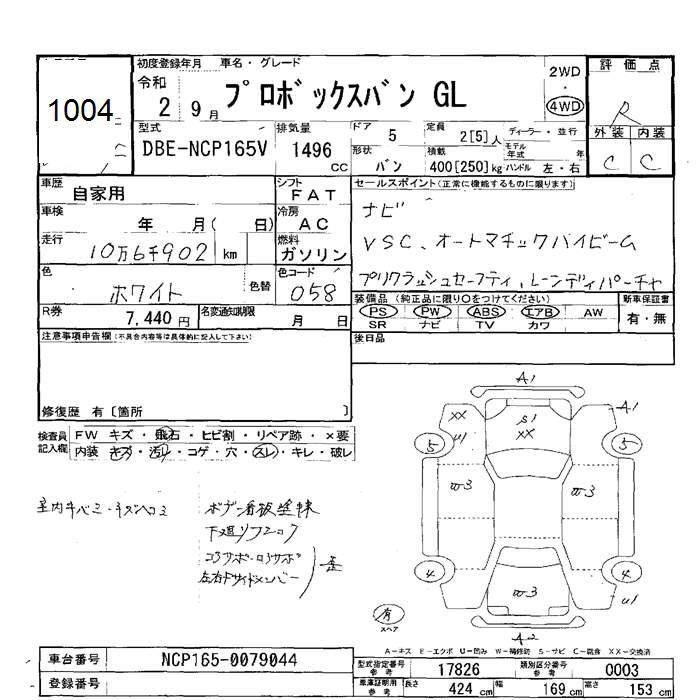 初度登録年月 車名・グレード
1004
令和 2 9月 プロボックスバン GL
2WD 4WD
評価点
R
型式 DBE-NCP165V
排気量 1496 CC
ドア 5
定員 2[5]人
ディーラー・並行
形状 バン
積載 400[250]kg
モデル年式 年
ハンドル 左・右
外装 内装
C C
車歴 自家用
シフト FAT
セールスポイント(正常に機能するものに限ります)
車検 年 月( 日)
冷房 AC
ナビ
走行 10万6千902 km
燃料 ガソリン
VSC、オートマチックハイビーム
色 ホワイト 色替
色コード 058
プリクラッシュセーフティ、レーンディパーチャ
R券 7,440円
名変通知期限 月 日
装備品(純正品に限り○をつけてください)
新車保証書
PS PW ABS エアB AW
有・無
SR ナビ TV カワ
注意事項申告欄(不具合内容等は具体的に記入して下さい)
後日品
修復歴 有〔箇所 〕
検査員記入欄
FW キズ・飛石・ヒビ割・リペア跡・×要
内装 キズ・汚レ・コゲ・穴・スレ・キレ・破レ
A1
XX U1
S1 XX
A1
5 5
W3 W3
4 4
W3
U1
A2
有 スペア
ボデー看板塗棟
コアサポ・ロアサポ
左右Fサイドメンバー
歪
A-キズ E-エクボ U-凹み W-補修跡 S-サビ C-腐食 XX-交換済
車台番号 NCP165-0079044
型式指定番号 参考 17826
類別区分番号 参考 0003
登録番号
車庫証明用 参考
長さ 424 cm
幅 169 cm
高さ 153 cm